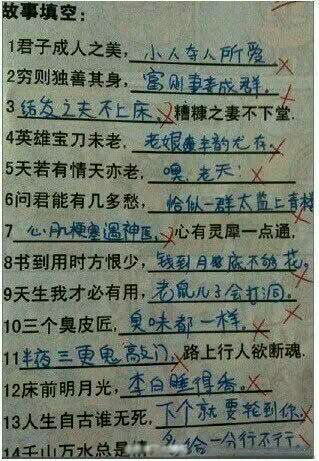 故事填空:
1君子成人之美,小人夺人所爱
2穷则独善其身,富则妻妾成群,
3结发之夫不上床,糟糠之妻不下堂.
4英雄宝刀未老,老娘风韵尤存.
5天若有情天亦老,噢,老天!
6问君能有几多愁,恰似一群太监上青楼
7心肌梗塞遇神医,心有灵犀一点通.
8书到用时方恨少,钱到月底不够花。
9天生我才必有用,老鼠儿子会打洞.
10三个臭皮匠,臭味都一样。
11半夜三更鬼敲门,路上行人欲断魂.
12床前明月光,李白睡得香。
13人生自古谁无死,下个就要轮到你.
14千山万水总是情,多给一分行不行.